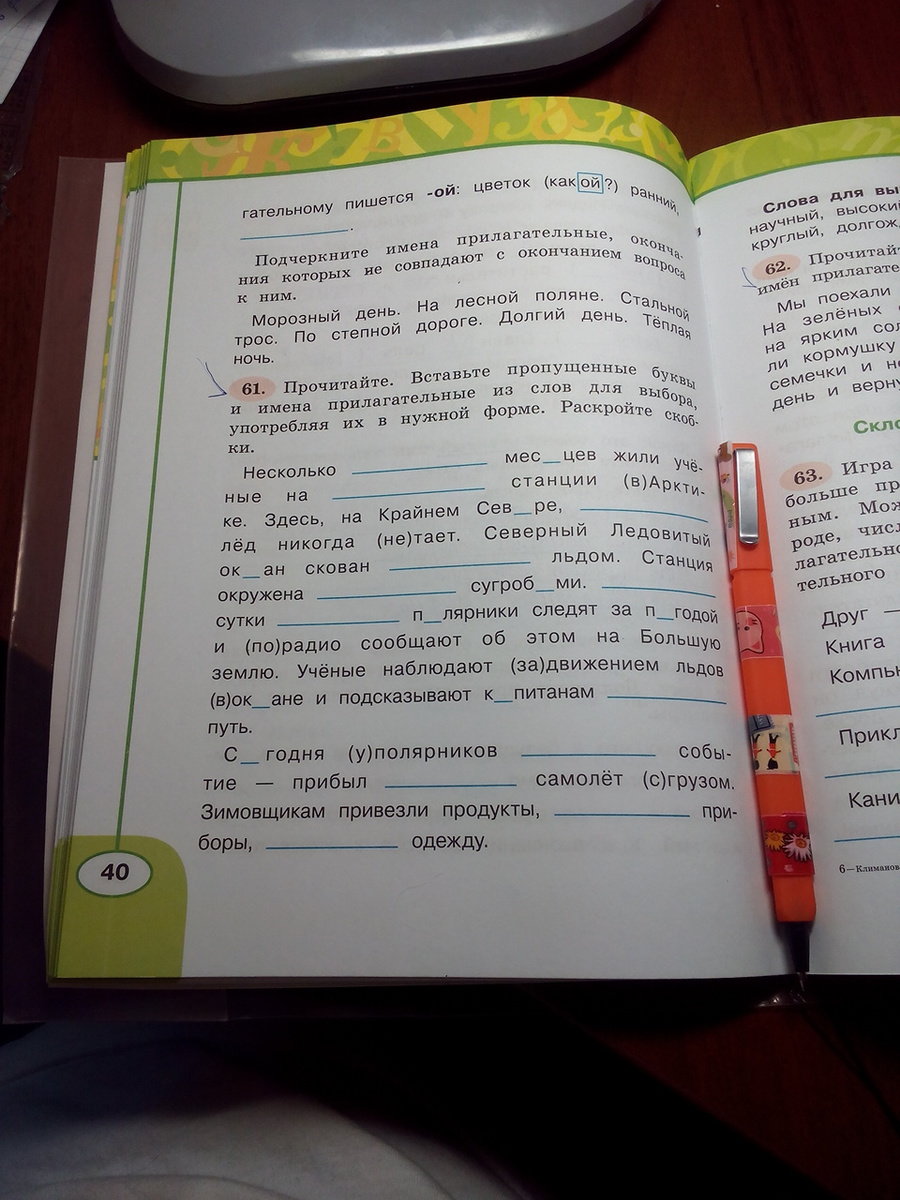 гательному пишется -ой: цветок (какой?) ранний,
____________.
Подчеркните имена прилагательные, оконча-
ния которых не совпадают с окончанием вопроса
к ним.
Морозный день. На лесной поляне. Стальной
трос. По степной дороге. Долгий день. Тёплая
ночь.
61. Прочитайте. Вставьте пропущенные буквы
и имена прилагательные из слов для выбора,
употребляя их в нужной форме. Раскройте скоб-
ки.
Несколько ____________ мес_цев жили учё-
ные на ____________ станции (в)Аркти-
ке. Здесь, на Крайнем Сев_ре, ____________
лёд никогда (не)тает. Северный Ледовитый
ок_ан скован ____________ льдом. Станция
окружена ____________ сугроб_ми. ____________
сутки ____________ п_лярники следят за п_годой
и (по)радио сообщают об этом на Большую
землю. Учёные наблюдают (за)движением льдов
(в)ок_ане и подсказывают к_питанам ____________
путь.
С_годня (у)полярников ____________ собы-
тие — прибыл ____________ самолёт (с)грузом.
Зимовщикам привезли продукты, ____________ при-
боры, ____________ одежду.
40
Слова для вы
научный, высокий
круглый, долгож
62. Прочитайт
имён прилагате
Мы поехали
На зелёных
на ярким сол
ли кормушку
семечки и не
день и верну
Скло
63. Игра
больше пр
ным. Мож
роде, чис
лагательно
тельного
Друг —
Книга
Компь
Прикл
Кани
6—Климанов